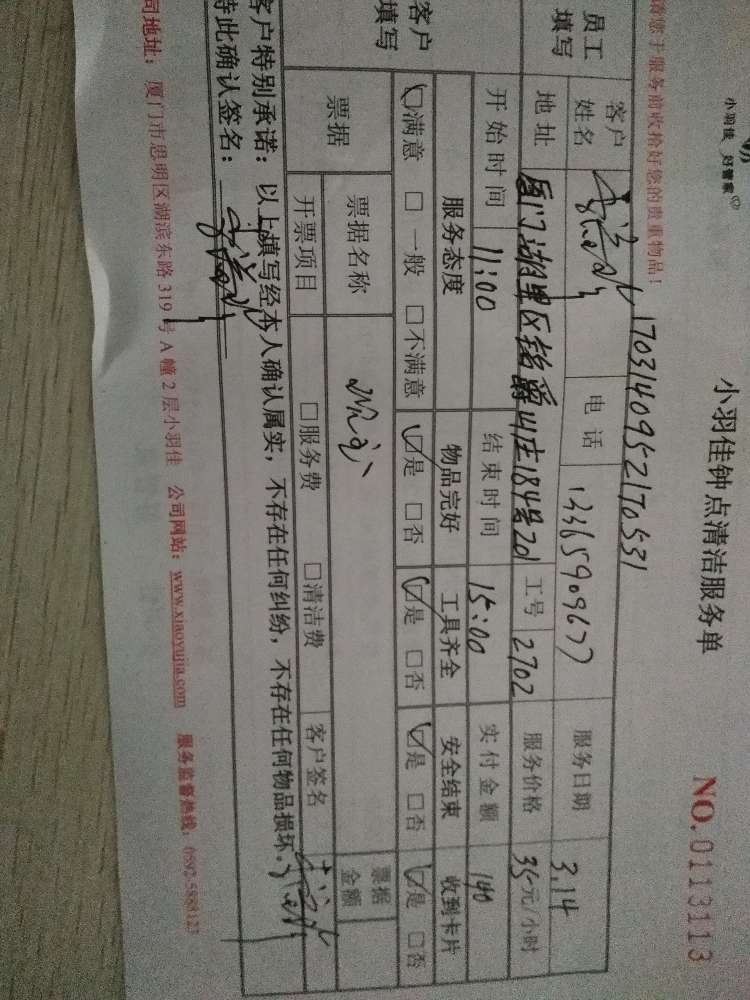 小羽佳 好管家
小羽佳钟点清洁服务单
NO.0113113
请您于服务前收拾好您的贵重物品！
1703140952170531
员工填写
客户姓名
电话 13365909677
服务日期 3.14
地址 厦门湖里区铭爵山庄184号201
工号 2702
服务价格 35元/小时
开始时间 11:00
结束时间 15:00
实付金额 140
客户填写
服务态度 物品完好 工具齐全 安全结束 收到卡片
☑满意 □一般 □不满意 ☑是 □否 ☑是 □否 ☑是 □否 ☑是 □否
票据 票据名称
票据金额
开票项目 □服务费 □清洁费 客户签名
客户特别承诺：以上填写经本人确认属实，不存在任何纠纷，不存在任何物品损坏。
特此确认签名：
司地址：厦门市思明区湖滨东路 319 号 A 幢 2 层小羽佳 公司网站：www.xiaoyujia.com 服务监督热线：0592-5889127